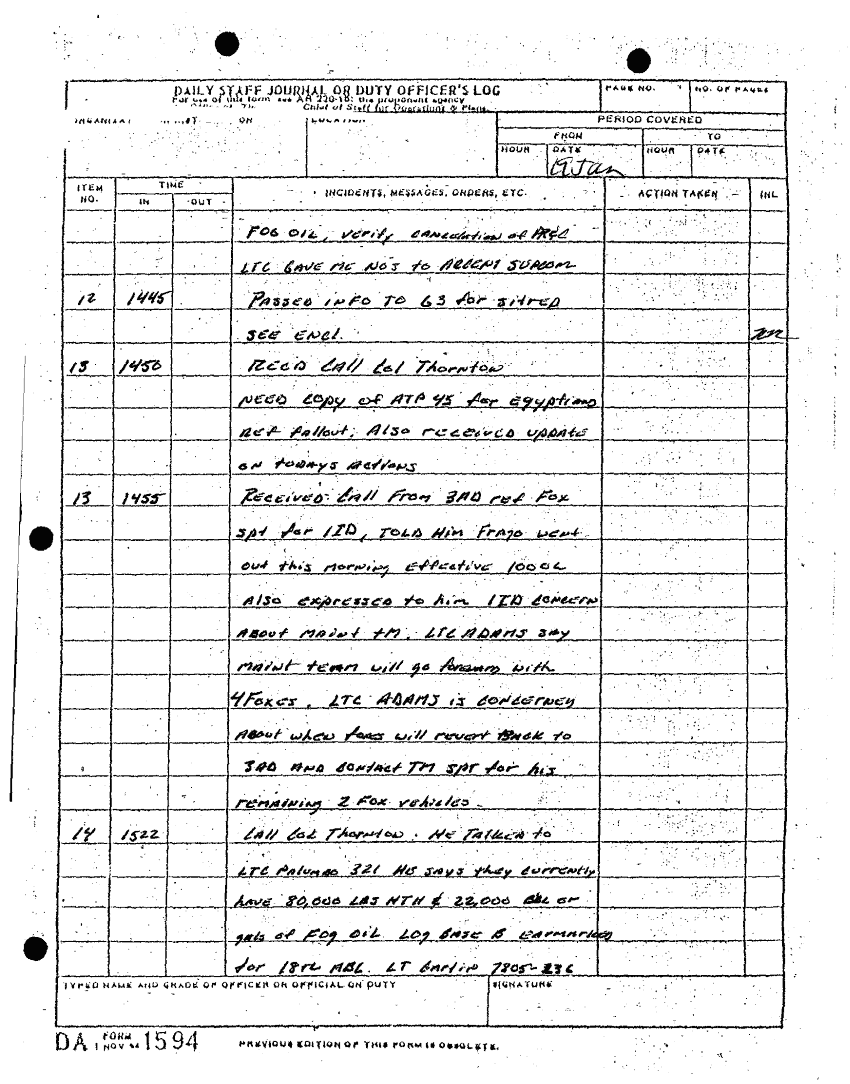 DAILY STAFF JOURNAL OR DUTY OFFICER'S LOG
For use of this form, see AR 220-15; the proponent agency
Chief of Staff for Operations & Plans.
PAGE NO.
NO. OF PAGES
LOCATION
PERIOD COVERED
FROM
TO
HOUR
DATE
HOUR
DATE
9 Jan
ITEM NO.
TIME
IN
OUT
INCIDENTS, MESSAGES, ORDERS, ETC.
ACTION TAKEN
INL
FOG OIL, verify cancelation of
LTC GAVE ME NO'S to ARCENT SUPCOM
12 1445 PASSED INFO TO G3 for sitrep
SEE ENCL.
13 1450 RECD CALL Col Thornton
NEED COPY of ATP 45 for Egyptians
REF fallout. Also received UPDATE
on TODAYS ACTIONS
13 1455 RECEIVED CALL From 3AD ref Fox
spt for 1ID, TOLD Him Frago went
out this morning Effective 1000L
Also expressed to him 1ID CONCERN
About MAINT TM. LTC ADAMS say
MAINT team will go forward with
4 Foxes. LTC ADAMS is concerned
About when foxes will revert BACK to
3AD AND contact TM SPT for his
remaining 2 Fox vehicles.
14 1522 CALL COL Thornton. HE TALKED to
LTC Palumbo 321 He says they currently
have 80,000 LBS HTH & 22,000 BBL or
gals of FOG OIL LOG BASE B EARMARKED
for 18th ABC. LT 7805-236
TYPED NAME AND GRADE OF OFFICER OR OFFICIAL ON DUTY
SIGNATURE
DA FORM 1594
1 NOV
PREVIOUS EDITION OF THIS FORM IS OBSOLETE.